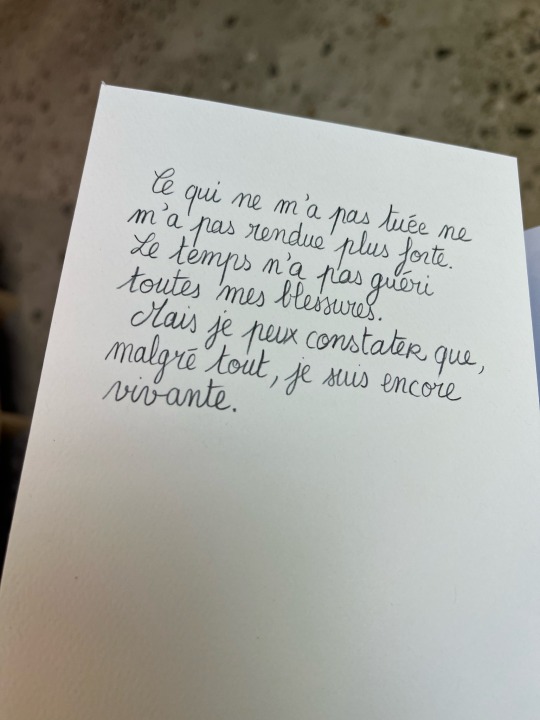 Ce qui ne m'a pas tuée ne
m'a pas rendue plus forte.
Le temps n'a pas guéri
toutes mes blessures.
Mais je peux constater que,
malgré tout, je suis encore
vivante.